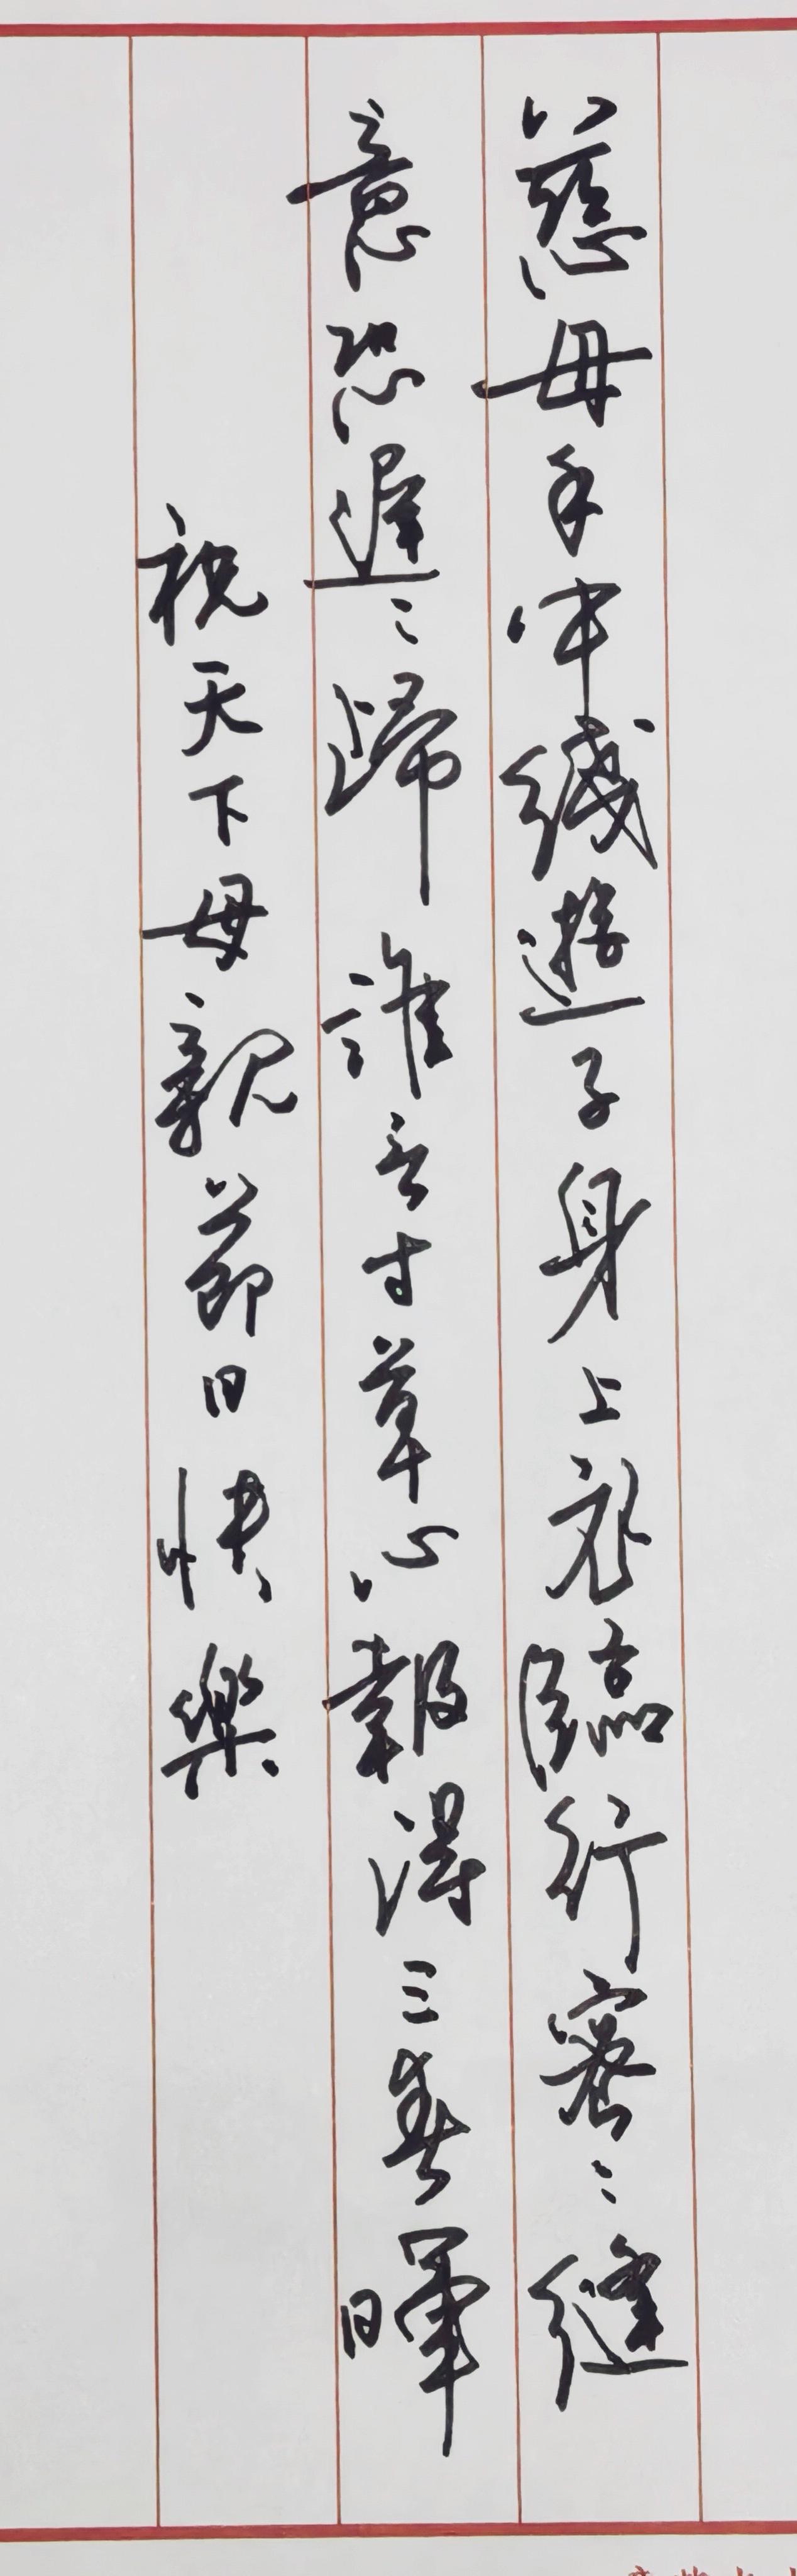 慈母手中綫遊子身上衣臨行密〻縫
意恐遲〻歸誰言寸草心報得三春暉
祝天下母親節日快樂